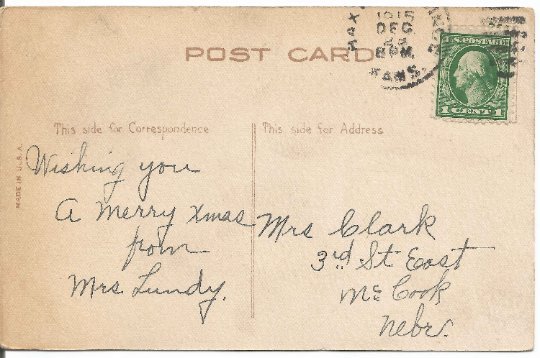 POST CARD
1915
DEC
8 PM
KANS.
U.S. POSTAGE
1 CENT 1
This side for Correspondence
This side for Address
MADE IN U.S.A.
Wishing you
A Merry Xmas
from
Mrs. Lundy.
Mrs Clark
3rd St East
Mc Cook
Nebr.